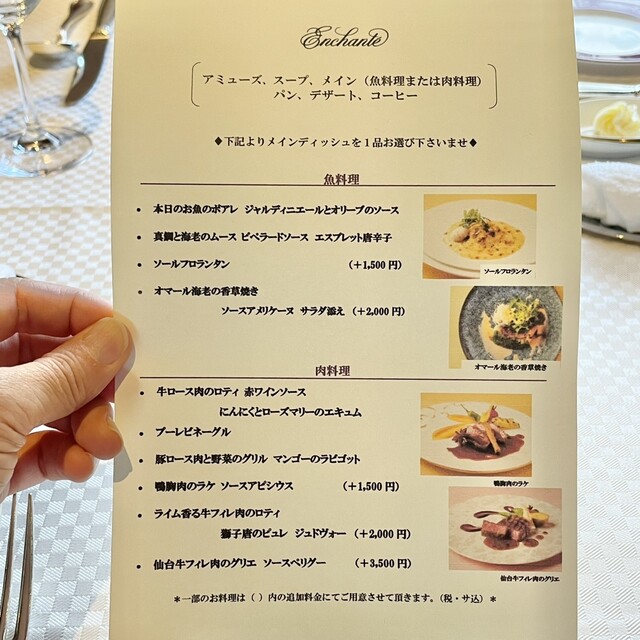 Enchanté
アミューズ、スープ、メイン（魚料理または肉料理）
パン、デザート、コーヒー
◆下記よりメインディッシュを１品お選び下さいませ◆
魚料理
• 本日のお魚のポアレ ジャルディニエールとオリーブのソース
• 真鯛と海老のムース ピペラードソース エスプレット唐辛子
• ソールフロランタン （＋1,500 円）
ソールフロランタン
• オマール海老の香草焼き
ソースアメリケーヌ サラダ添え （＋2,000 円）
オマール海老の香草焼き
肉料理
• 牛ロース肉のロティ 赤ワインソース
にんにくとローズマリーのエキュム
• プーレビネーグル
• 豚ロース肉と野菜のグリル マンゴーのラビゴット
• 鴨胸肉のラケ ソースアピシウス （＋1,500 円）
鴨胸肉のラケ
• ライム香る牛フィレ肉のロティ
獅子唐のピュレ ジュドヴォー （＋2,000 円）
• 仙台牛フィレ肉のグリエ ソースペリグー （＋3,500 円）
仙台牛フィレ肉のグリエ
＊一部のお料理は（ ）内の追加料金にてご用意させて頂きます。（税・サ込）＊